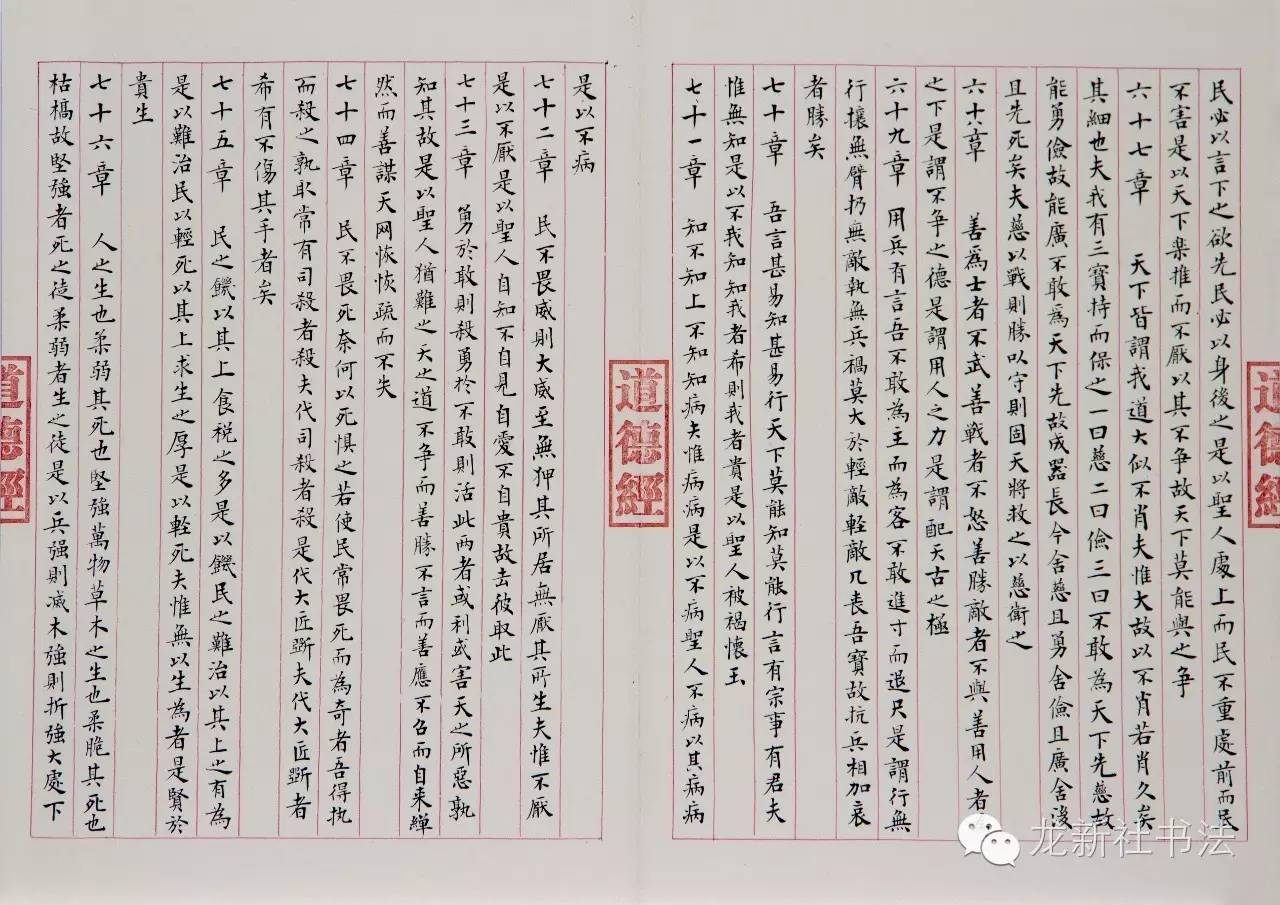 民必以言下之欲先民必以身後之是以聖人處上而民不重處前而民
不害是以天下樂推而不厭以其不爭故天下莫能與之爭
六十七章 天下皆謂我道大似不肖夫惟大故以不肖若肖久矣
其細也夫我有三寶持而保之一曰慈二曰儉三曰不敢為天下先慈故
能勇儉故能廣不敢為天下先故成器長今舍慈且勇舍儉且廣舍後
且先死矣夫慈以戰則勝以守則固天將救之以慈衛之
六十八章 善爲士者不武善戰者不怒善勝敵者不與善用人者
之下是謂不爭之德是謂用人之力是謂配天古之極
六十九章 用兵有言吾不敢為王而為客不敢進寸而退尺是謂行無
行攘無臂扔無敵執無兵禍莫大於輕敵輕敵几丧吾寶故抗兵相加哀
者勝矣
七十章 吾言甚易知甚易行天下莫能知莫能行言有宗事有君夫
惟無知是以不我知知我者希則我者貴是以聖人被褐懷玉
七十一章 知不知上不知知病夫惟病病是以不病聖人不病以其病病
道德經
是以不病
七十二章 民不畏威則大威至無狎其所居無厭其所生夫惟不厭
是以不厭是以聖人自知不自見自愛不自貴故去彼取此
七十三章 勇於敢則殺勇於不敢則活此两者或利或害天之所惡孰
知其故是以聖人猶難之天之道不爭而善勝不言而善應不召而自来繟
然而善謀天网恢恢疏而不失
七十四章 民不畏死奈何以死惧之若使民常畏死而為奇者吾得执
而殺之孰敢常有司殺者殺夫代司殺者殺是代大匠斲夫代大匠斲者
希有不傷其手者矣
七十五章 民之饑以其上食税之多是以饑民之難治以其上之有為
是以難治民以輕死以其上求生之厚是以輕死夫惟無以生為者是賢於
貴生
七十六章 人之生也柔弱其死也堅強萬物草木之生也柔脆其死也
枯槁故堅強者死之徒柔弱者生之徒是以兵强則滅木強則折強大處下
道德經
道德經
龙新社书法